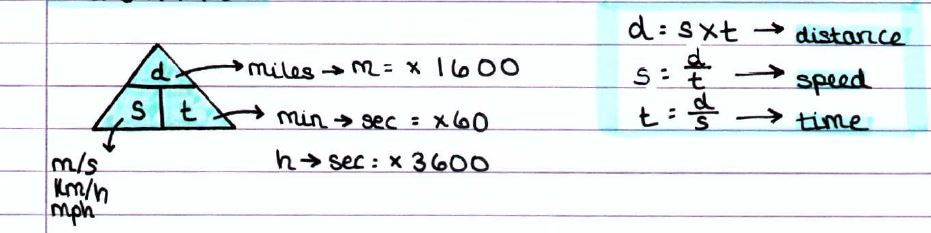 d
s t
miles → m = × 1600
min → sec = ×60
h → sec : × 3600
m/s
km/h
mph
d = s × t → distance
s = d/t → speed
t = d/s → time